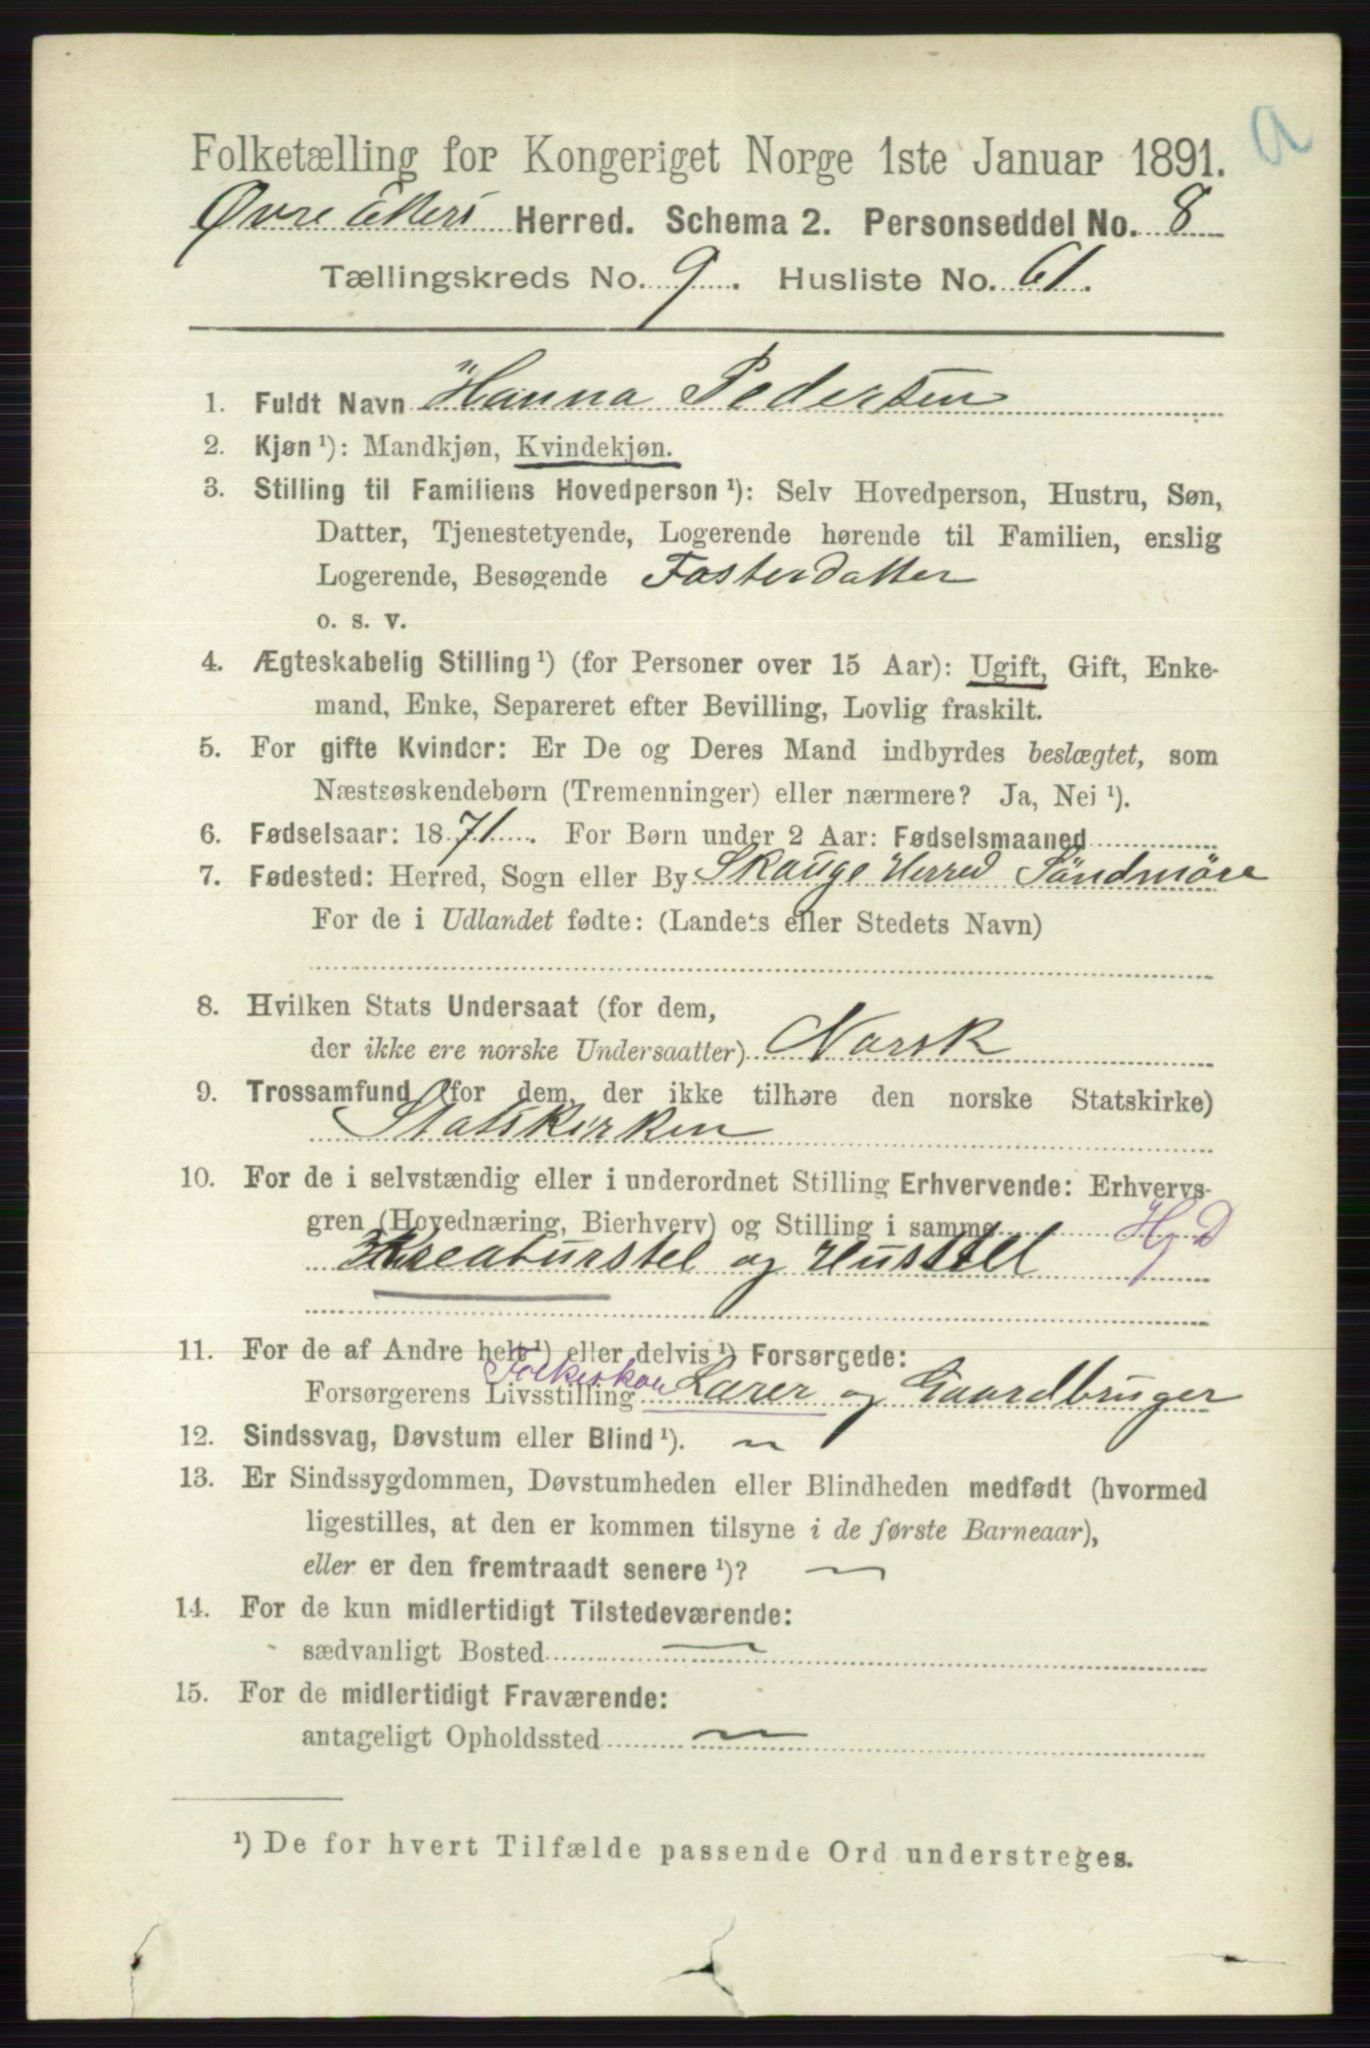 a
Folketælling for Kongeriget Norge 1ste Januar 1891.
Øvre Ekers Herred. Schema 2. Personseddel No. 8
Tællingskreds No. 9. Husliste No. 61.
1. Fuldt Navn Hanna Pedersen
2. Kjøn ¹): Mandkjøn, Kvindekjøn.
3. Stilling til Familiens Hovedperson ¹): Selv Hovedperson, Hustru, Søn,
Datter, Tjenestetyende, Logerende hørende til Familien, enslig
Logerende, Besøgende Fosterdatter
o. s. v.
4. Ægteskabelig Stilling ¹) (for Personer over 15 Aar): Ugift, Gift, Enke-
mand, Enke, Separeret efter Bevilling, Lovlig fraskilt.
5. For gifte Kvinder: Er De og Deres Mand indbyrdes beslægtet, som
Næstsøskendebørn (Tremenninger) eller nærmere? Ja, Nei ¹).
6. Fødselsaar: 1871. For Børn under 2 Aar: Fødselsmaaned
7. Fødested: Herred, Sogn eller By Skauge Herred Søndmøre
For de i Udlandet fødte: (Landets eller Stedets Navn)
8. Hvilken Stats Undersaat (for dem,
der ikke ere norske Undersaatter) Norsk
9. Trossamfund (for dem, der ikke tilhøre den norske Statskirke)
Statskirken
10. For de i selvstændig eller i underordnet Stilling Erhvervende: Erhvervs-
gren (Hovednæring, Bierhverv) og Stilling i samme HjD
Kreaturstel og Husstel
11. For de af Andre helt ¹) eller delvis ¹) Forsørgede:
Forsørgerens Livsstilling Folkeskole Lærer og Gaardbruger
12. Sindssvag, Døvstum eller Blind ¹). ~
13. Er Sindssygdommen, Døvstumheden eller Blindheden medfødt (hvormed
ligestilles, at den er kommen tilsyne i de første Barneaar),
eller er den fremtraadt senere ¹)? ~
14. For de kun midlertidigt Tilstedeværende:
sædvanligt Bosted ~
15. For de midlertidigt Fraværende:
antageligt Opholdssted ~
¹) De for hvert Tilfælde passende Ord understreges.